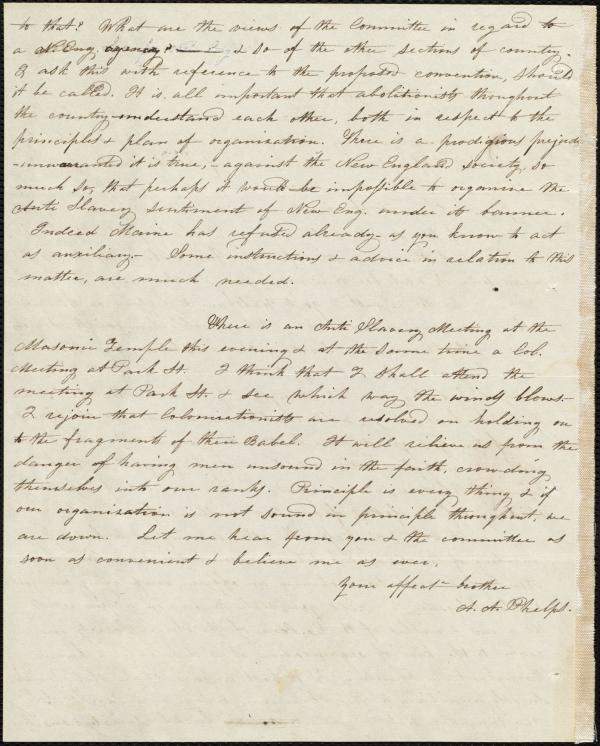 to that? What are the views of the Committee in regard to
a N. Eng. agency? & so of the other sections of country.
I ask this with reference to the proposed convention, should
it be called. It is all important that abolitionists throughout
the country understand each other, both in respect to the
principles & plan of organization. There is a prodigious prejudice
- unwarranted it is true, - against the New England society, so
much so, that perhaps it would be impossible to organize the
Anti Slavery sentiment of New Eng. under its banner.
Indeed Maine has refused already as you know to act
as auxiliary - Some instructions & advice in relation to this
matter, are much needed.
There is an Anti Slavery Meeting at the
Masonic Temple this evening & at the same time a Col.
Meeting at Park St. I think that I shall attend the
meeting at Park St. & see which way the wind blows -
I rejoice that Colonizationists are resolved on holding on
to the fragments of their Babel. It will relieve us from the
danger of having men unsound in the faith, crowding
themselves into our ranks. Principle is every thing & if
our organization is not sound in principle throughout, we
are down. Let me hear from you & the committee as
soon as convenient & believe me as ever,
Your affect- brother
A. A. Phelps.